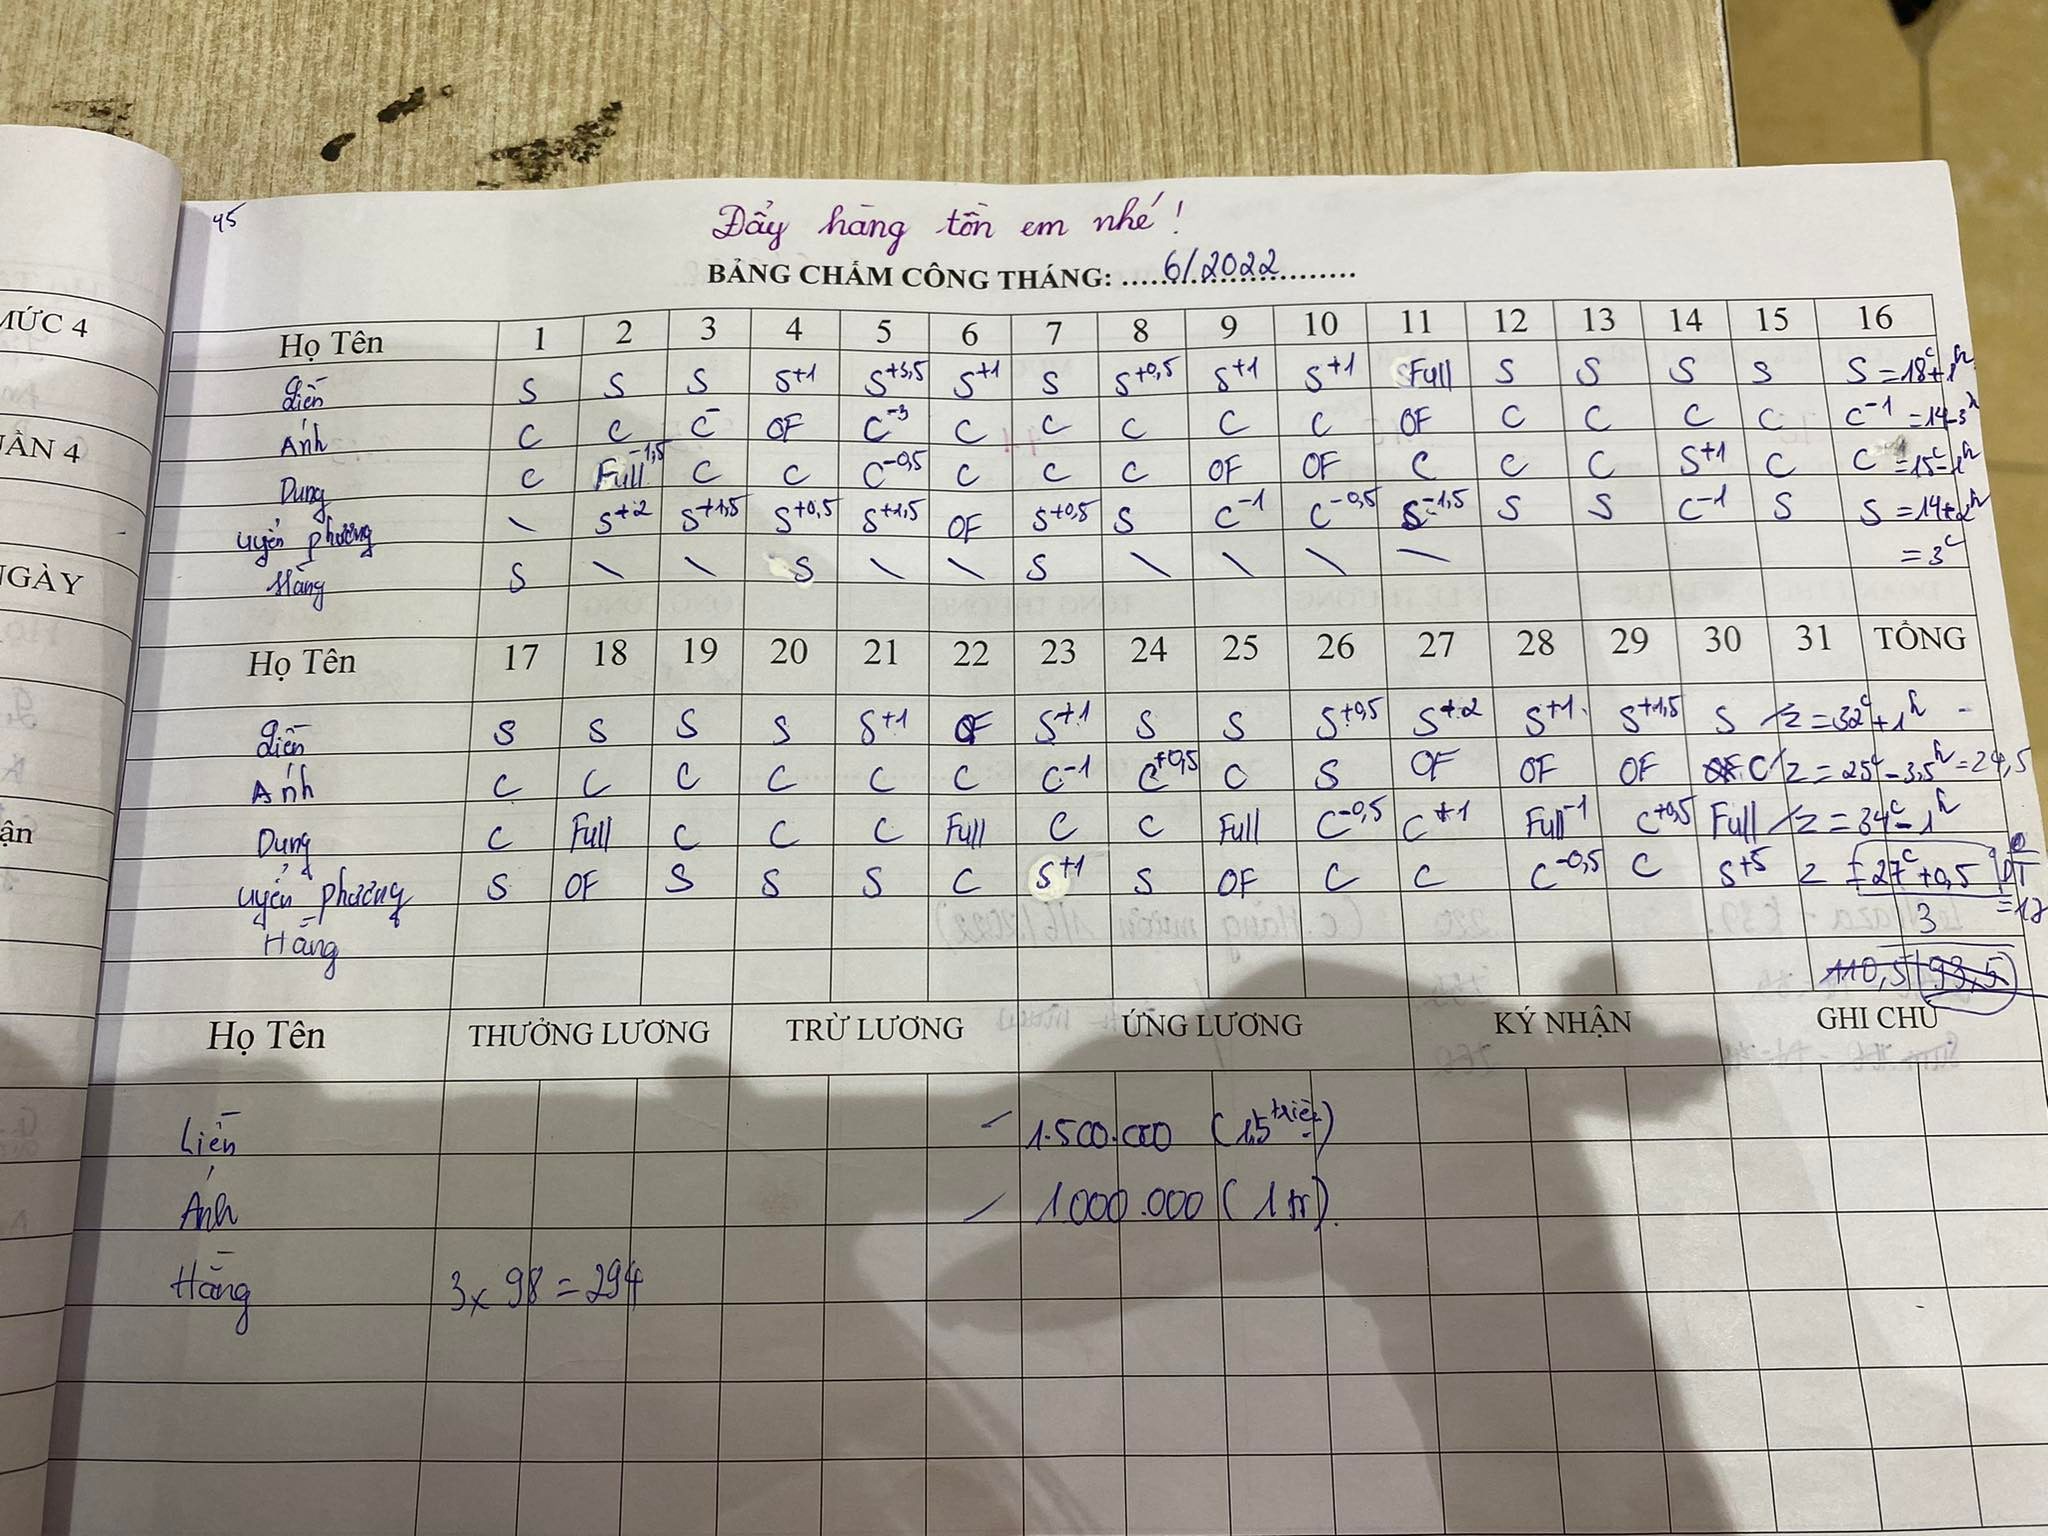 45
Đẩy hàng tồn em nhé!
BẢNG CHẤM CÔNG THÁNG: 6/2022
MỨC 4
UẦN 4
NGÀY
ận
Họ Tên 1 2 3 4 5 6 7 8 9 10 11 12 13 14 15 16
Liên S S S S+1 S+3,5 S+1 S S+0,5 S+1 S+1 Full S S S S S = 18c+1h
Ánh C C C- OF C-3 C C C C C OF C C C C C-1 = 14-3h
Dung C Full-1,5 C C C-0,5 C C C OF OF C C C S+1 C C-1 = 15c-1h
Uyển Phương \ S+2 S+1,5 S+0,5 S+1,5 OF S+0,5 S C-1 C-0,5 S-1,5 S S C-1 S S = 14+2h
Hằng S \ \ S \ \ S \ \ \ \ = 3c
Họ Tên 17 18 19 20 21 22 23 24 25 26 27 28 29 30 31 TỔNG
Liên S S S S S+1 OF S+1 S S S+0,5 S+2 S+1 S+1,5 S /z = 32c+1h
Ánh C C C C C C C-1 C+0,5 C S OF OF OF C /z = 25c-3,5h = 24,5
Dung C Full C C C Full C C Full C-0,5 C+1 Full-1 C+0,5 Full /z = 34c-1h
Uyển Phương S OF S S S C S+1 S OF C C C-0,5 C S+5 z = 27c+0,5
Hằng 3
110,5 93,5
Họ Tên THƯỞNG LƯƠNG TRỪ LƯƠNG ỨNG LƯƠNG KÝ NHẬN GHI CHÚ
Liên - 1.500.000 (1,5 triệu)
Ánh - 1.000.000 (1 tr).
Hằng 3x 98 = 294